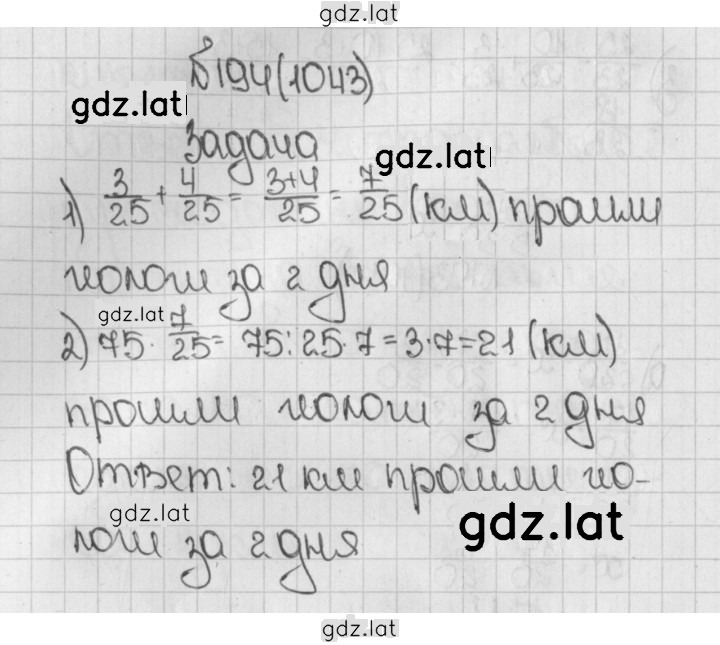 gdz.lat
Б194(1043)
gdz.lat
Задача
gdz.lat
1) 3/25 + 4/25 = 3+4/25 = 7/25 (км) прошли
за 2 дня
gdz.lat
2) 75 · 7/25 = 75:25·7=3·7=21 (км)
прошли за 2 дня
Ответ: 21 км прошли
gdz.lat
gdz.lat
за 2 дня
gdz.lat